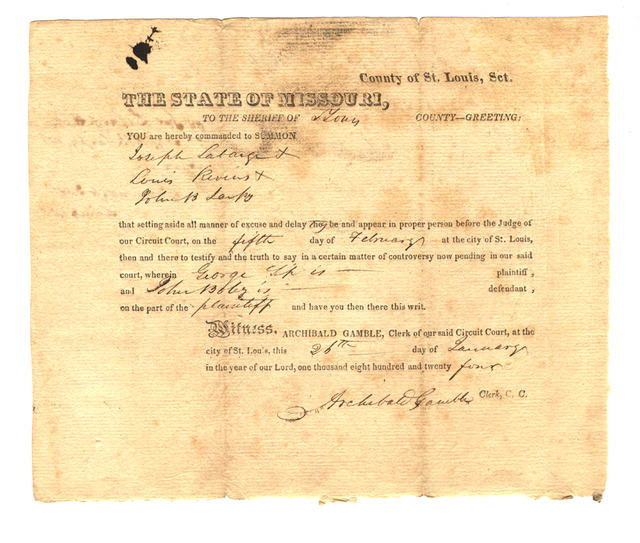 County of St. Louis, Sct.
THE STATE OF MISSOURI,
TO THE SHERIFF OF St Louis COUNTY—GREETING:
YOU are hereby commanded to SUMMON
Joseph Labarge +
Louis +
John B
that setting aside all manner of excuse and delay they be and appear in proper person before the Judge of
our Circuit Court, on the fifth day of February at the city of St. Louis,
then and there to testify and the truth to say in a certain matter of controversy now pending in our said
court, wherein George is — plaintiff,
and John is — defendant,
on the part of the plaintiff and have you then there this writ.
Witness, ARCHIBALD GAMBLE, Clerk of our said Circuit Court, at the
city of St. Louis, this 26th day of January
in the year of our Lord, one thousand eight hundred and twenty four
Archibald Gamble Clerk, C. C.